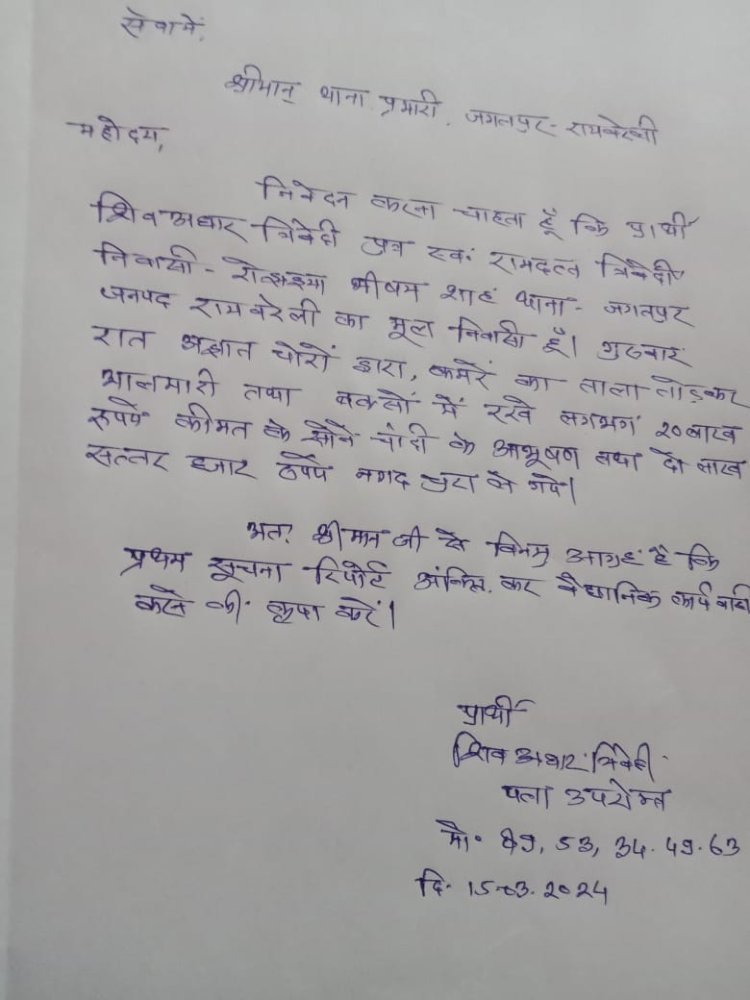 सेवा में,
श्रीमान् थाना प्रभारी, जगतपुर - रायबरेली
महोदय,
निवेदन करना चाहता हूँ कि प्रार्थी
शिव अधार त्रिवेदी पुत्र स्व. रामदत्त त्रिवेदी
निवासी - भीषम शाह थाना - जगतपुर
जनपद रायबरेली का मूल निवासी हूँ। गुरुवार
रात अज्ञात चोरों द्वारा, कमरें का ताला तोड़कर
आलमारी तथा बक्सों में रखे लगभग 20 लाख
रुपये कीमत के सोने चांदी के आभूषण तथा दो लाख
सत्तर हजार रुपये नगद चुरा ले गये।
अतः श्रीमान जी से विनम्र आग्रह है कि
प्रथम सूचना रिपोर्ट अंकित, कर वैधानिक कार्यवाही
करने की कृपा करें।
प्रार्थी
शिव अधार त्रिवेदी
पता उपरोक्त
मो. 89, 53, 34.49.63
दि. 15-03.2024